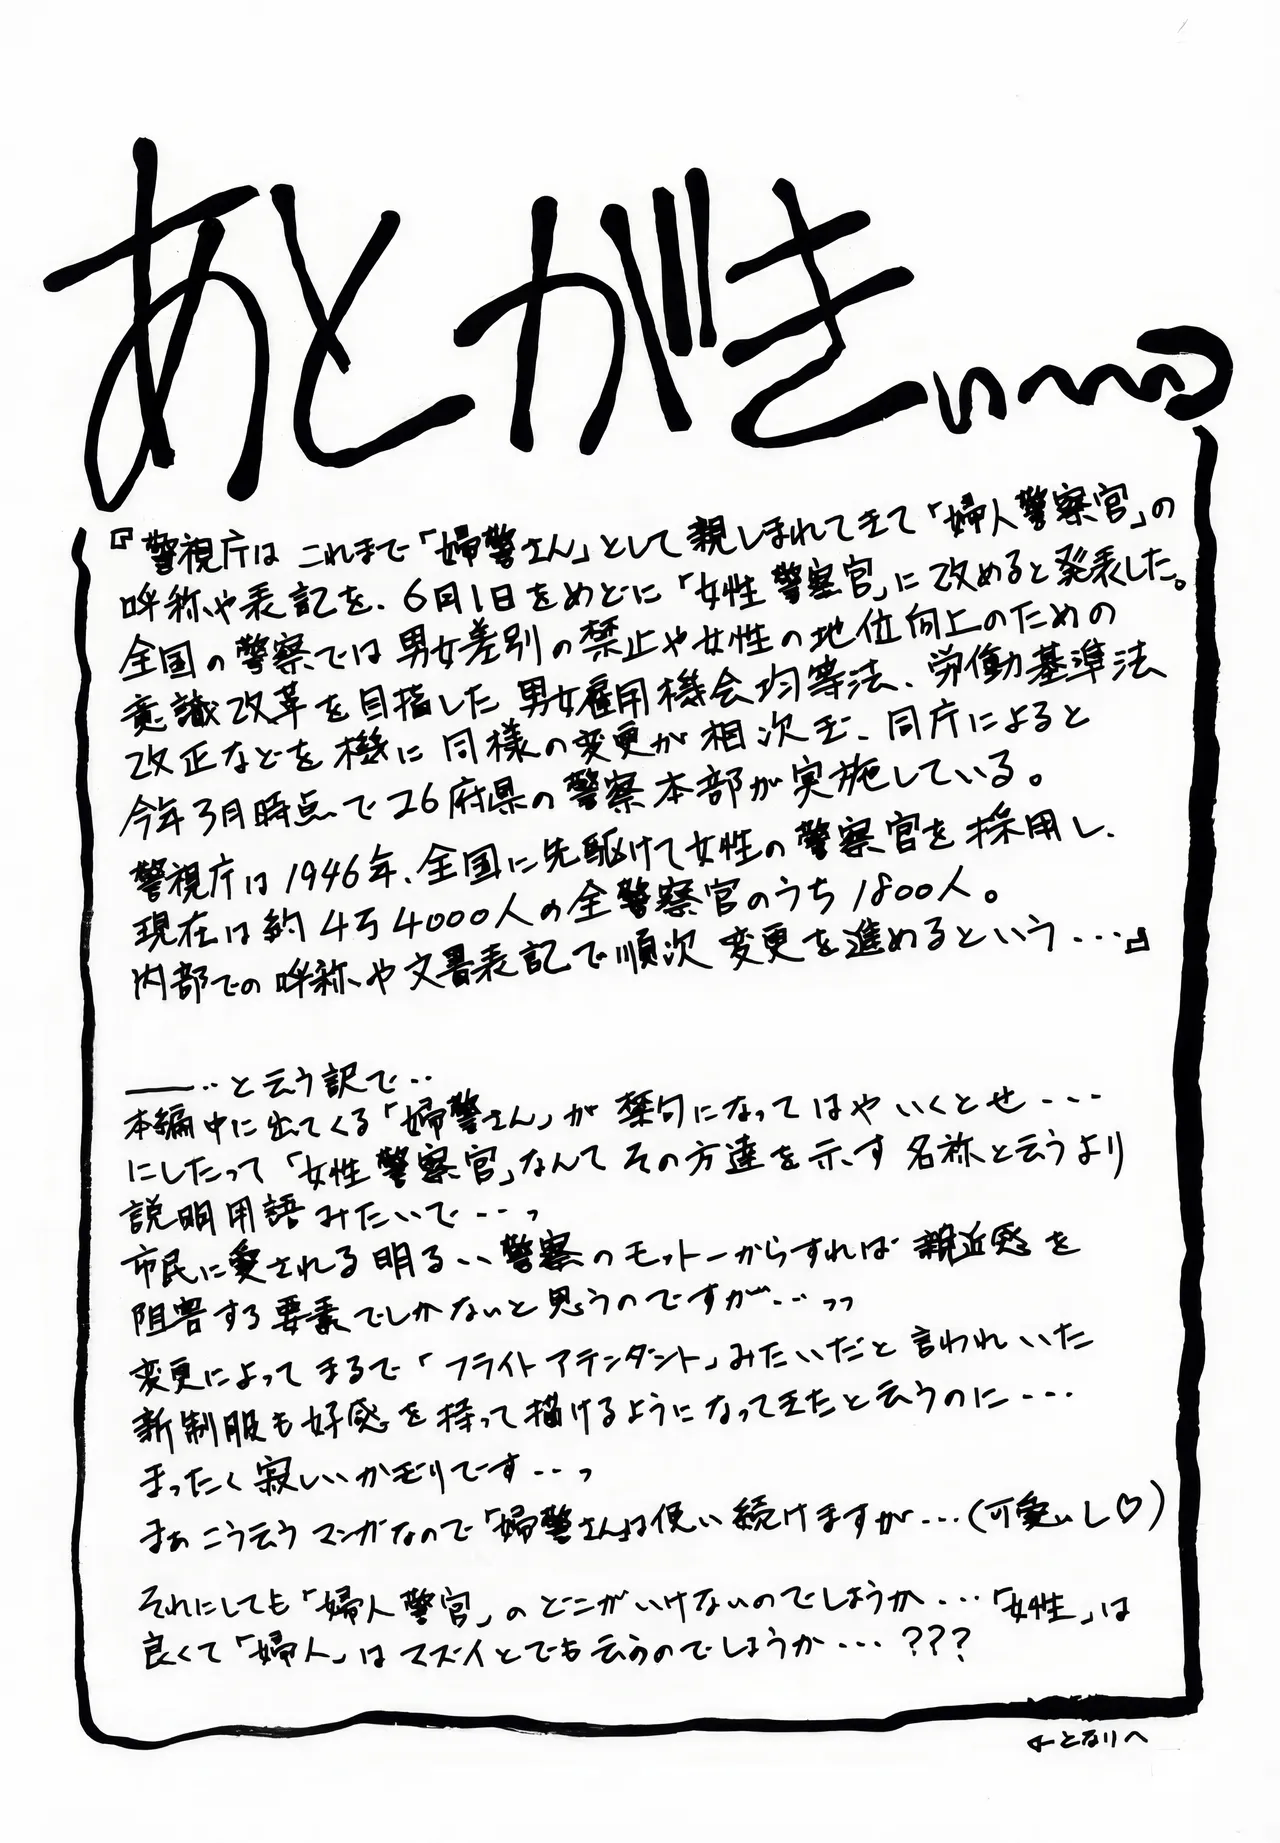 あとがきぃ〜〜
『警視庁は これまで「婦警さん」として親しまれてきて「婦人警察官」の
呼称や表記を、6月1日をめどに「女性警察官」に改めると発表した。
全国の警察では男女差別の禁止や女性の地位向上のための
意識改革を目指した男女雇用機会均等法、労働基準法
改正などを機に同様の変更が相次ぎ、同庁によると
今年3月時点で26府県の警察本部が実施している。
警視庁は1946年、全国に先駆けて女性の警察官を採用し、
現在は約4万4000人の全警察官のうち1800人。
内部での呼称や文書表記で順次変更を進めるという・・・』
――‥と云う訳で‥
本編中に出てくる「婦警さん」が禁句になってはやいくとせ・・・
にしたって「女性警察官」なんてその方達を示す名称と云うより
説明用語みたいで・・・っ
市民に愛される明るい警察のモットーからすれば親近感を
阻害する要素でしかないと思うのですが・・・っっ
変更によってまるで「フライトアテンダント」みたいだと言われいた
新制服も好感を持って描けるようになってきたと云うのに・・・
まったく寂しいかギリです・・っ
まぁこう云うマンガなので「婦警さん」は使い続けますが・・・(可愛ぃし♡)
それにしても「婦人警官」のどこがいけないのでしょうか・・・「女性」は
良くて「婦人」はマズイとでも云うのでしょうか・・・???
←となりへ